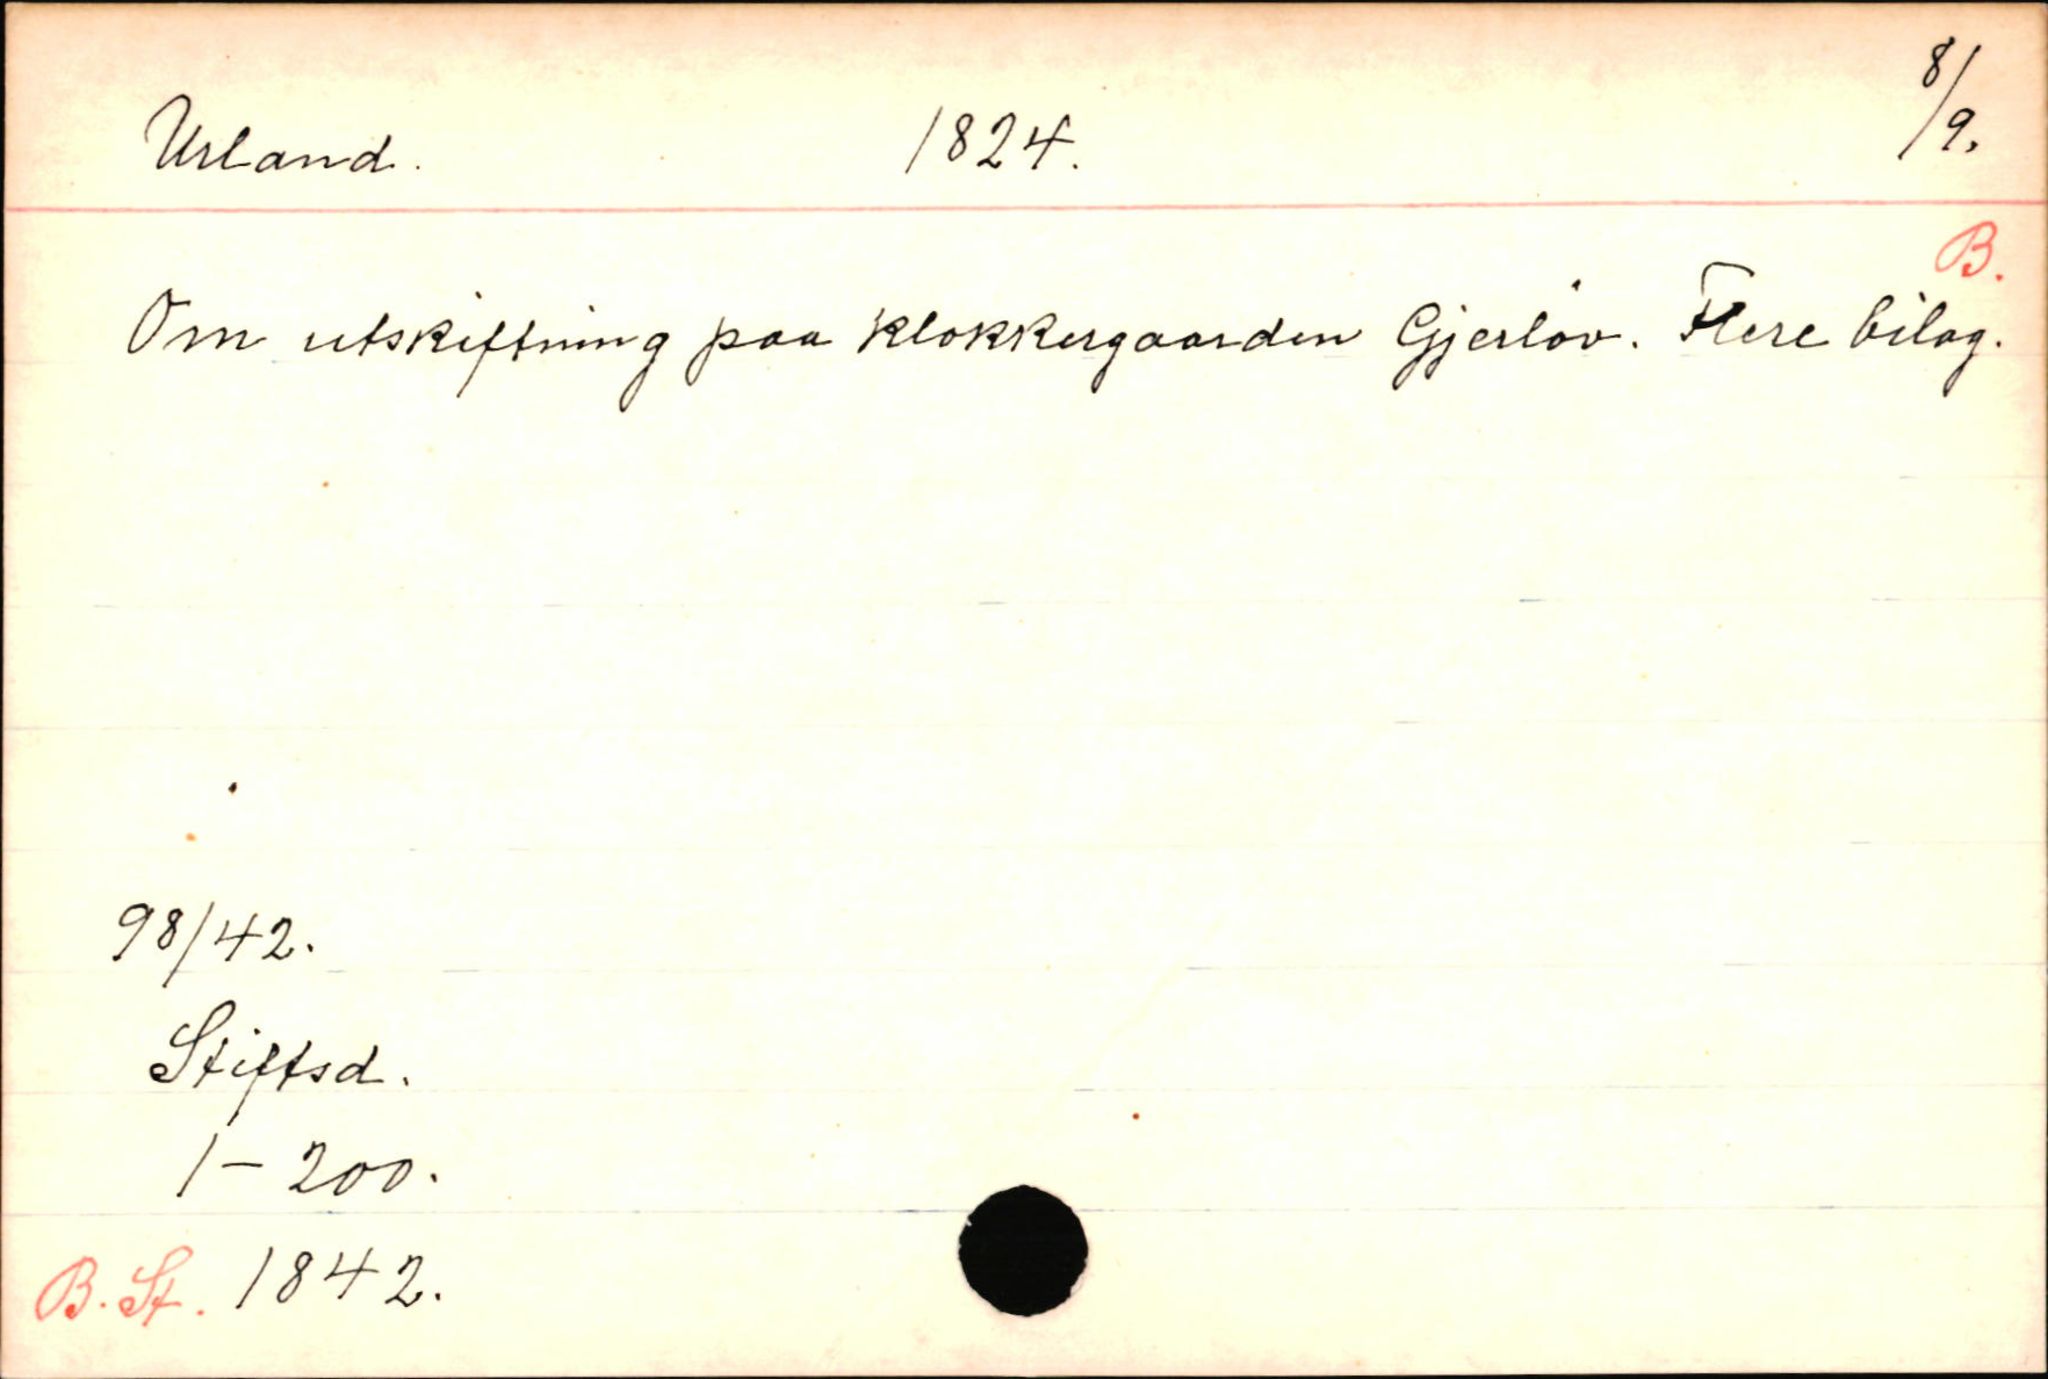 Urland. 1824. 8/9.
B.
Om utskiftning paa klokkergaarden Gjerløv. Flere bilag.
98/42.
Stiftsd.
1-200.
B. St. 1842.